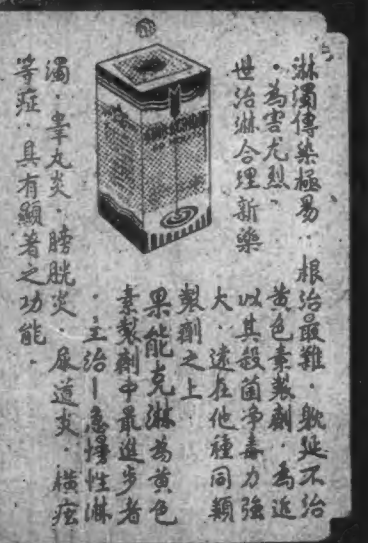 淋濁傳染極易．根治最難．躭延不治
．為害尤烈．黃色素製劑．為近
世治淋合理新藥以其殺菌净毒力強
大．遠在他種同類
製劑之上．
果能克淋為黃色
素製劑中最進步者
．主治—急慢性淋
濁．睾丸炎．膀胱炎．尿道炎．橫痃
等症．具有顯著之功能．